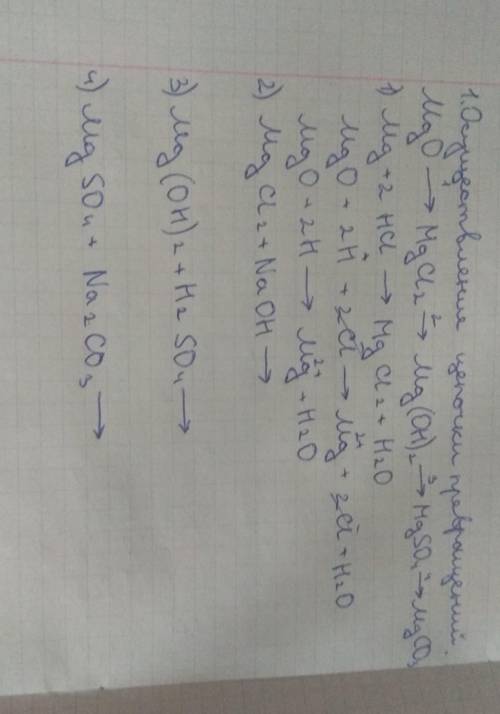 1. Осуществления цепочки превращений.
MgO →¹ MgCl₂ →² Mg(OH)₂ →³ MgSO₄ →⁴ MgCO₃
1) Mg + 2 HCl → MgCl₂ + H₂O
MgO + 2H⁺ + 2Cl⁻ → Mg²⁺ + 2Cl⁻ + H₂O
MgO + 2H → Mg²⁺ + H₂O
2) MgCl₂ + NaOH →
3) Mg(OH)₂ + H₂SO₄ →
4) MgSO₄ + Na₂CO₃ →